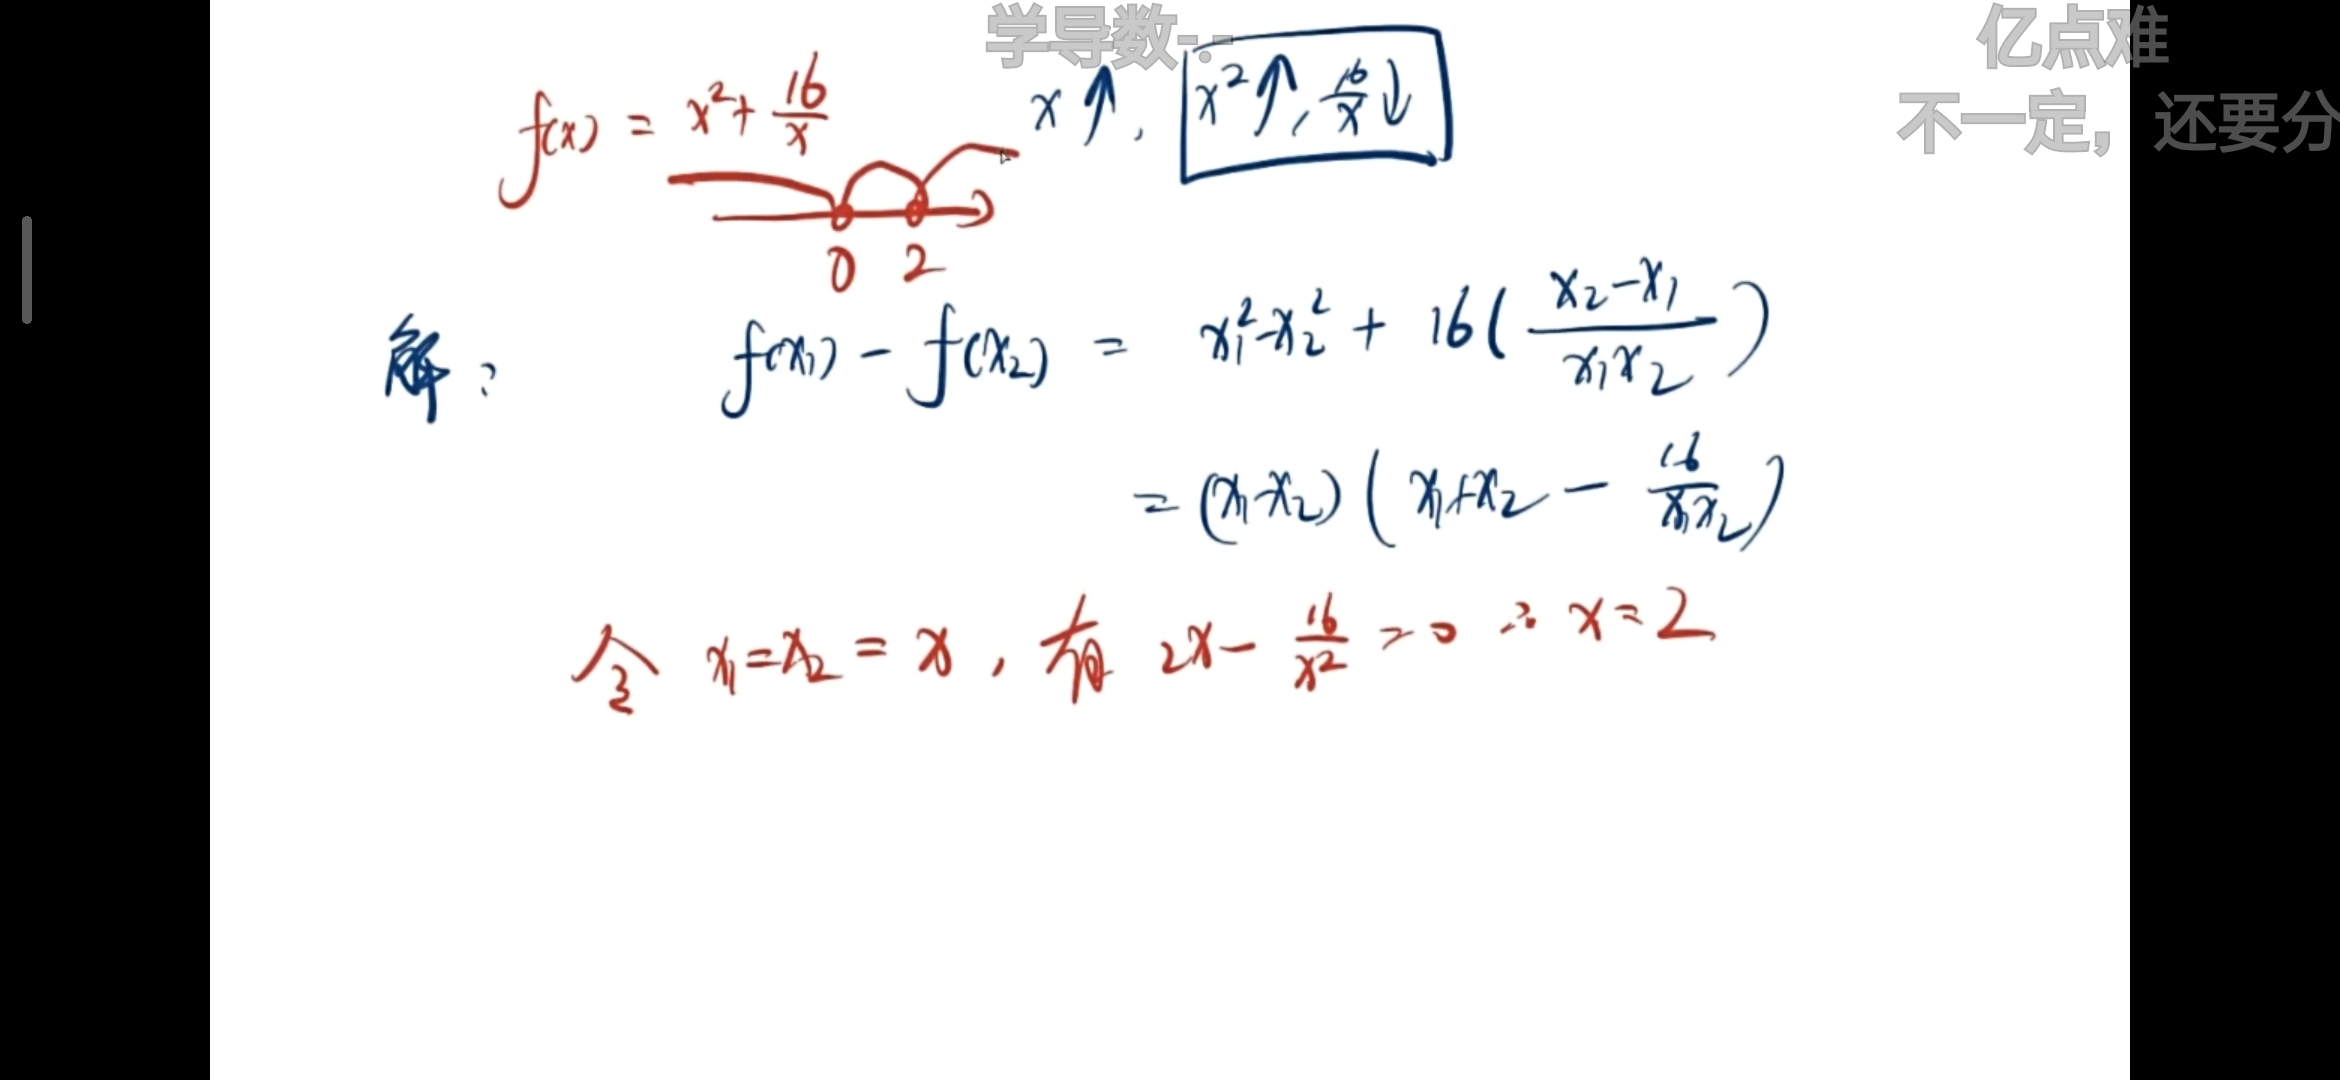 学导数-.-
亿点难
不一定，还要分
f(x) = x² + 16/x    x↑, x²↑, 16/x↓
0 2
解: f(x₁) - f(x₂) = x₁² - x₂² + 16( (x₂-x₁)/(x₁x₂) )
= (x₁-x₂)( x₁+x₂ - 16/(x₁x₂) )
令 x₁=x₂=x, 有 2x - 16/x² = 0 ∴ x=2